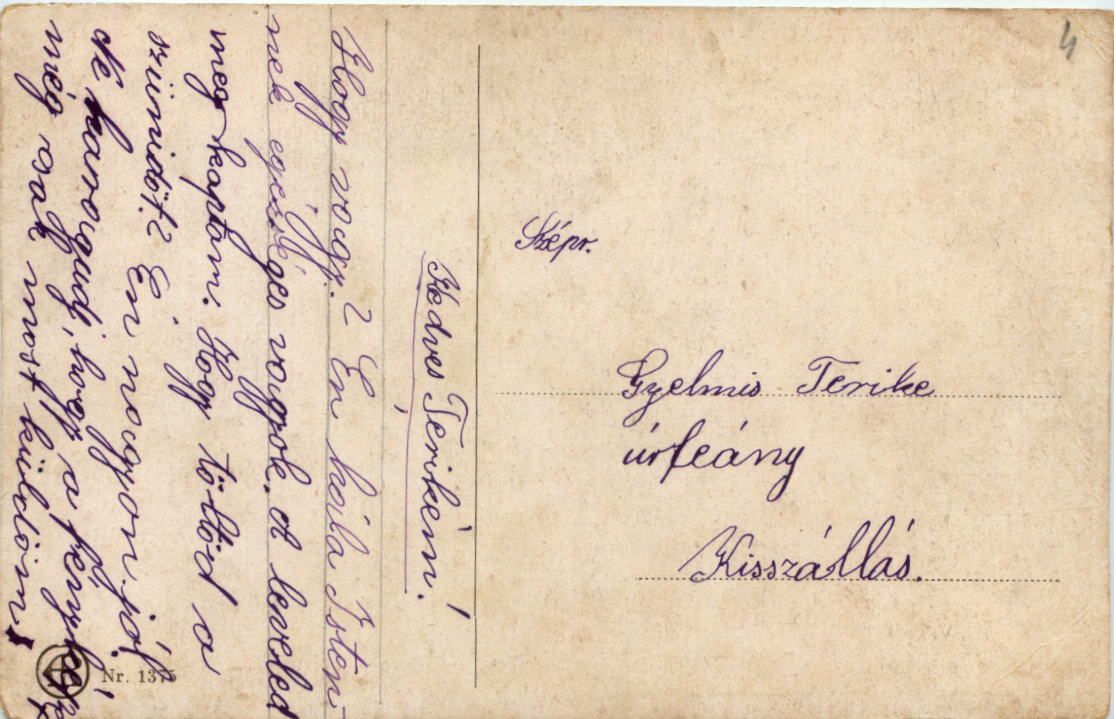 Kedves Terikém!
Hogy vagy? Én hála Isten-
nek egészséges vagyok. A leveled
meg kaptam. Hogy töltöd a
szünidőt? Én nagyon jól.
Ne haragudj, hogy a fényképz
még csak most küldöm!
4
Szépr.
Gyelmis Terike
úrleány
Kisszállás.
Nr. 1375